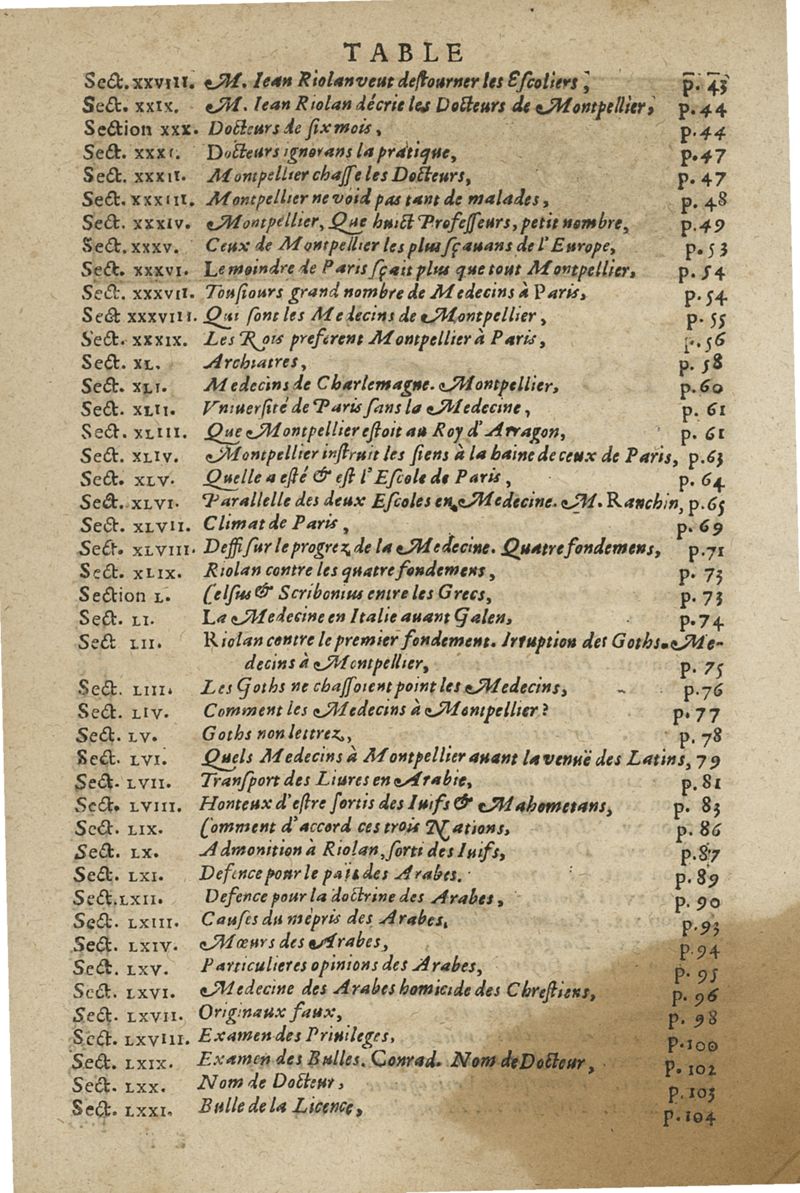 TABLE
Sect. XXVIII. M. Iean Riolan veut destourner les Escoliers, p. 43
Sect. XXIX. M. Iean Riolan décrie les Docteurs de Montpellier, p. 44
Section XXX. Docteurs de six mois, p. 44
Sect. XXXI. Docteurs ignorans la pratique, p. 47
Sect. XXXII. Montpellier chasse les Docteurs, p. 47
Sect. XXXIII. Montpellier ne void pas tant de malades, p. 48
Sect. XXXIV. Montpellier, Que huict Professeurs, petit nombre, p. 49
Sect. XXXV. Ceux de Montpellier les plus sçauans de l'Europe, p. 53
Sect. XXXVI. Le moindre de Paris sçait plus que tout Montpellier, p. 54
Sect. XXXVII. Tousiours grand nombre de Medecins à Paris, p. 54
Sect XXXVIII. Qui sont les Medecins de Montpellier, p. 55
Sect. XXXIX. Les Rois preferent Montpellier à Paris, p. 56
Sect. XL. Archiatres, p. 58
Sect. XLI. Medecins de Charlemagne. Montpellier, p. 60
Sect. XLII. Vniuersité de Paris sans la Medecine, p. 61
Sect. XLIII. Que Montpellier estoit au Roy d'Arragon, p. 61
Sect. XLIV. Montpellier instruit les siens à la haine de ceux de Paris, p. 63
Sect. XLV. Quelle a esté & est l'Escole de Paris, p. 64
Sect. XLVI. Parallelle des deux Escoles en Medecine. M. Ranchin, p. 65
Sect. XLVII. Climat de Paris, p. 69
Sect. XLVIII. Deffi sur le progrez de la Medecine. Quatre fondemens, p. 71
Sect. XLIX. Riolan contre les quatre fondemens, p. 73
Section L. Celsus & Scribonius entre les Grecs, p. 73
Sect. LI. La Medecine en Italie auant Galen, p. 74
Sect LII. Riolan contre le premier fondement. Irruption des Goths. Me-
decins à Montpellier, p. 75
Sect. LIII. Les Goths ne chassoient point les Medecins, p. 76
Sect. LIV. Comment les Medecins à Montpellier? p. 77
Sect. LV. Goths non lettrez, p. 78
Sect. LVI. Quels Medecins à Montpellier auant la venuë des Latins, 79
Sect. LVII. Transport des Liures en Arabie, p. 81
Sect. LVIII. Honteux d'estre sortis des Iuifs & Mahometans, p. 83
Sect. LIX. Comment d'accord ces trois Nations, p. 86
Sect. LX. Admonition à Riolan, sorti des Iuifs, p. 87
Sect. LXI. Defence pour le païs des Arabes. p. 89
Sect. LXII. Defence pour la doctrine des Arabes, p. 90
Sect. LXIII. Causes du mépris des Arabes, p. 93
Sect. LXIV. Mœurs des Arabes, p. 94
Sect. LXV. Particulieres opinions des Arabes, p. 95
Sect. LXVI. Medecine des Arabes homicide des Chrestiens, p. 96
Sect. LXVII. Originaux faux, p. 98
Sect. LXVIII. Examen des Priuileges, p. 100
Sect. LXIX. Examen des Bulles. Conrad. Nom de Docteur, p. 102
Sect. LXX. Nom de Docteur, p. 103
Sect. LXXI. Bulle de la Licence, p. 104